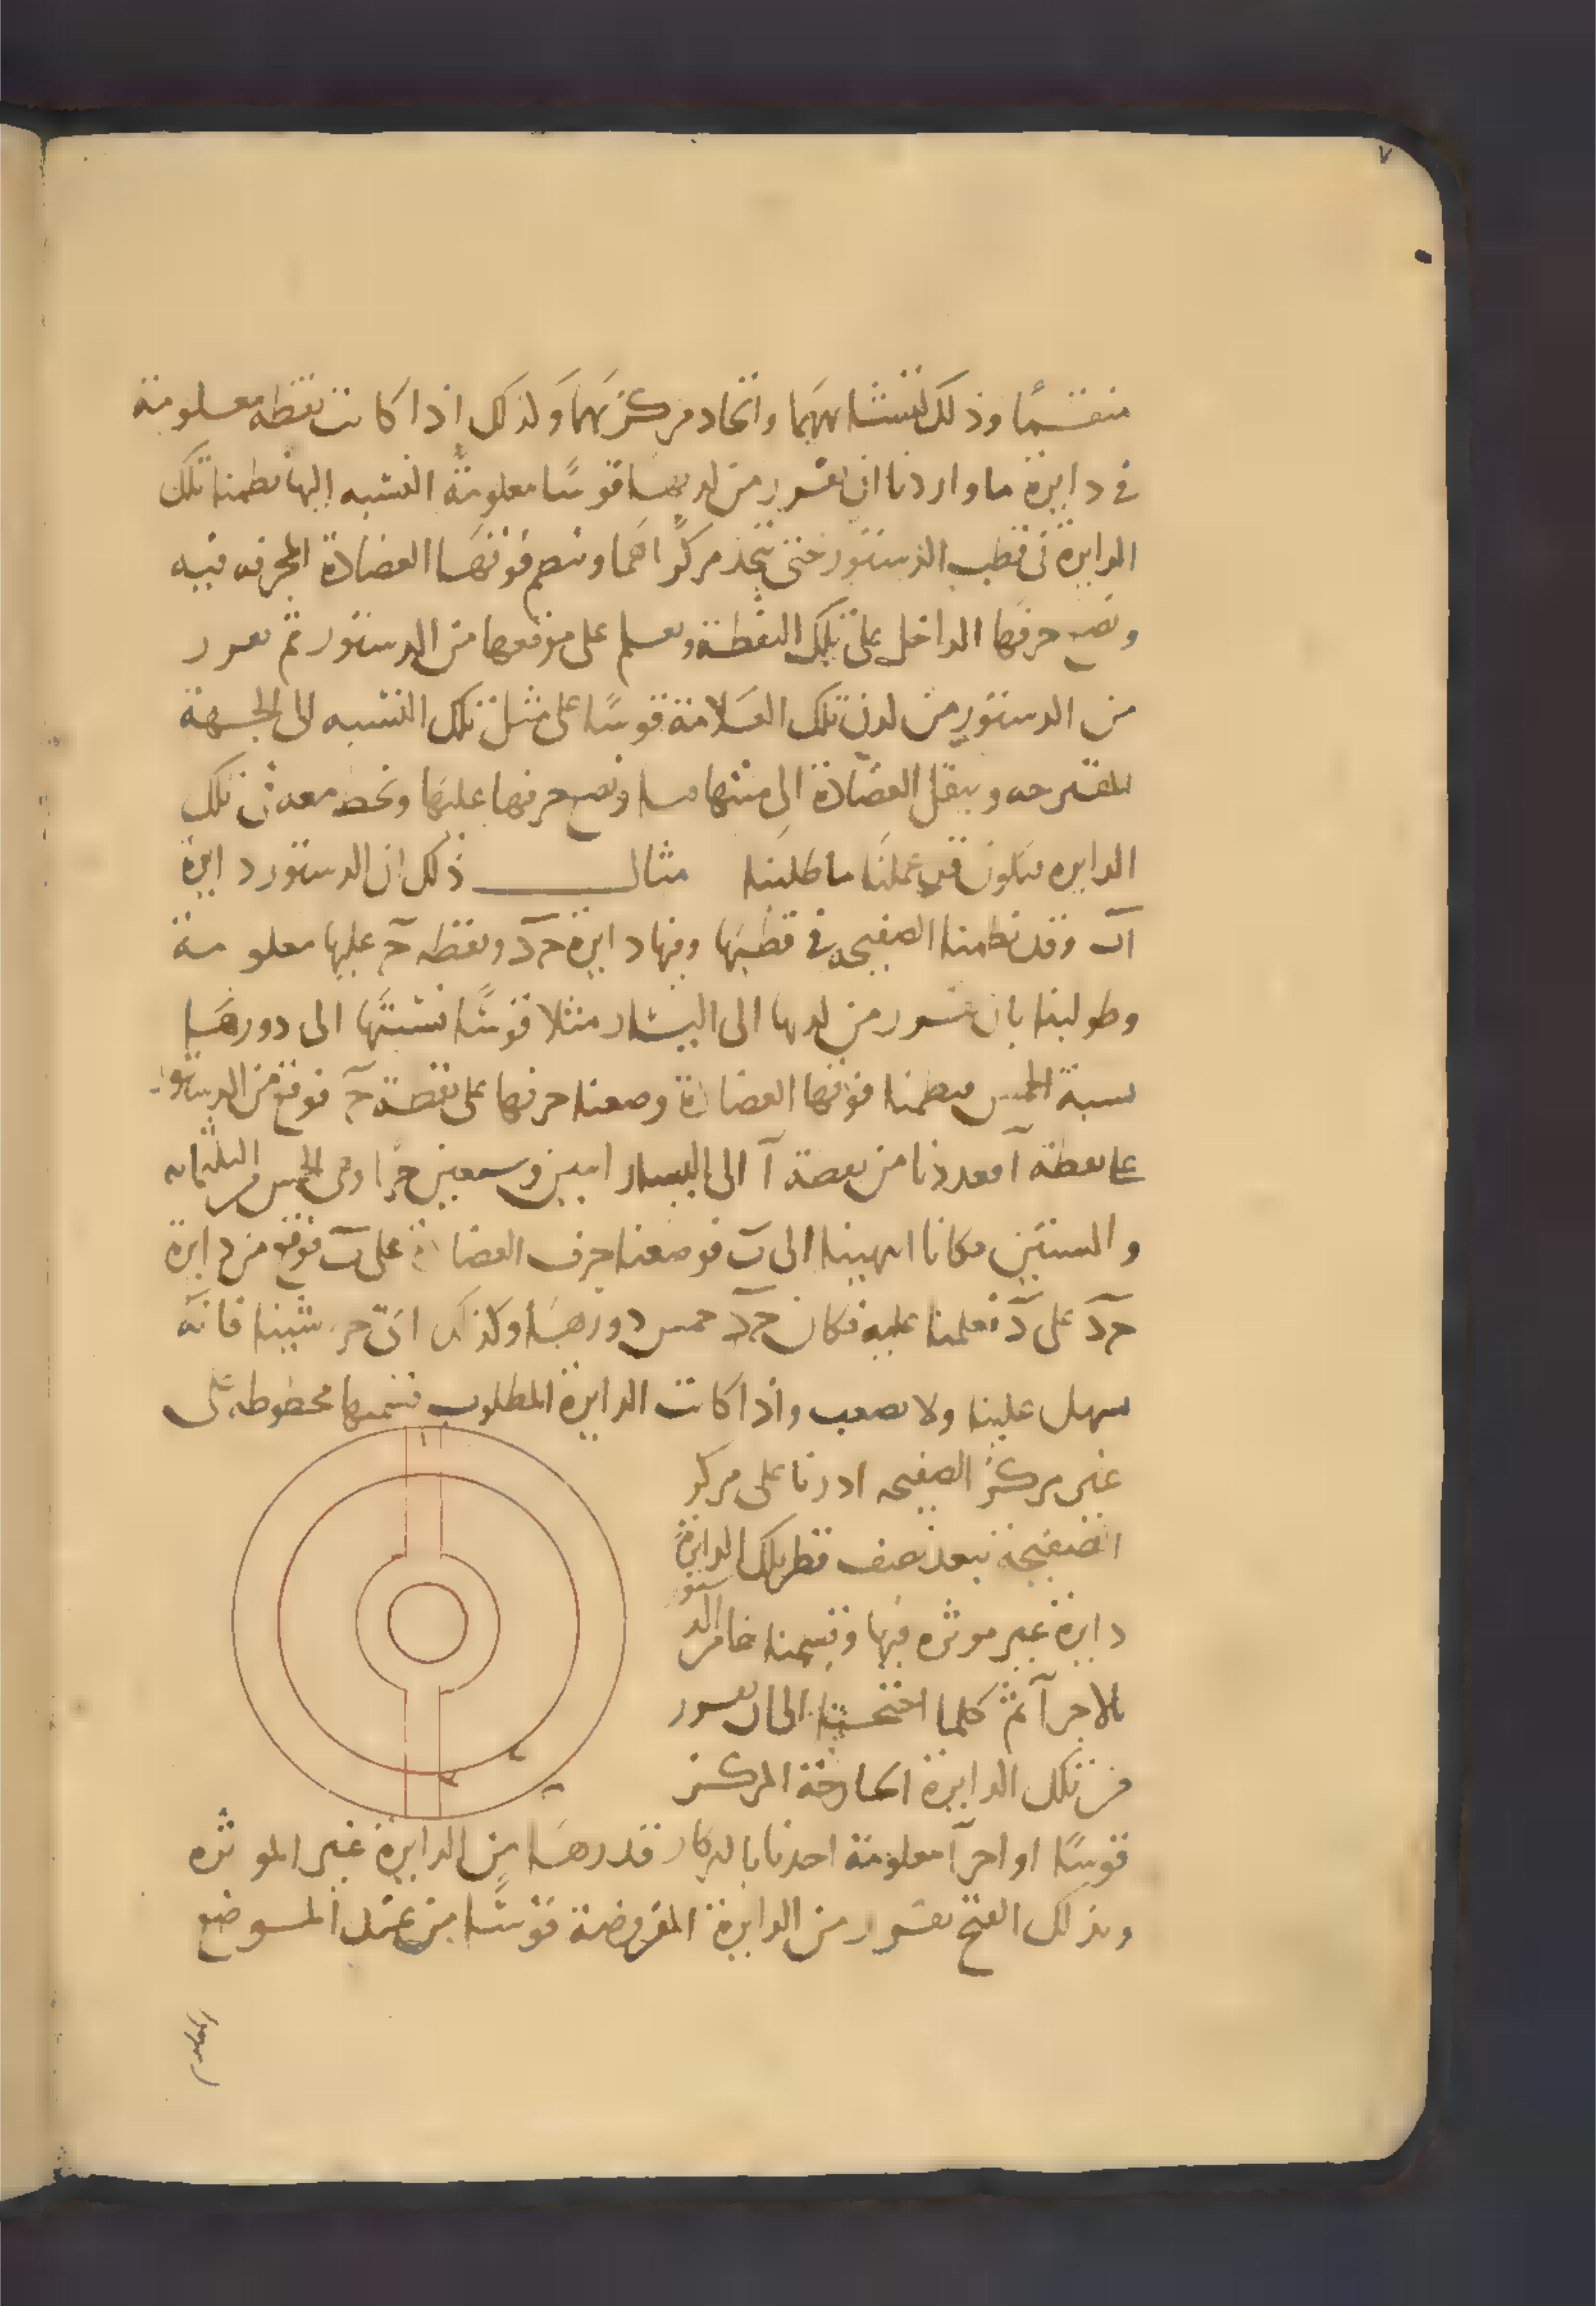 ٧
منقسمًا وذلك لتشابههما واتحاد مركزيهما ولذلك إذا كانت نقطه معلومة
في دايرة ما واردنا ان نفسور من لدنها قوسًا معلومة النسبه إليها نظمنا تلك
الدايرة في قطب الدستور حتى يتحد مركزاهما ونضم فوقها العضادة المحرفه فيه
ونضع حرفها الداخل على تلك النقطة ونعلم على موقعها من الدستور ثم نفسور
من الدستور من لدن تلك العلامة قوسًا على مثل تلك النسبه الى الجهة
المقترحه وننقل العضادة الى منتهاها ونضع حرفها عليها ونخط معه في تلك
الدايره فيكون قد عملنا ما طلبنا مثال ذلك ان الدستور دايرة
اب وقد نظمنا الصفيحه في قطبها وفيها دايرة حد ونقطه ح عليها معلومة
وطولبنا بان نفسور من لدنها الى اليسار مثلا قوسًا نسبتها الى دورها
نسبة الخمس فنظمنا فوقها العضادة وضعنا حرفها على نقطة ح فوقع من الدستور
على نقطه آ فعددنا من نقطة آ الى اليسار اثنين وسبعين جزا وهي الخمس من الثلثمايه
والستين فكانا انتهينا الى ب فوضعنا حرف العضادة على ب فوقع من دايرة
حد على د فعلمنا عليه فكان حد خمس دورها وكذلك ان جزينا فانه
سهل علينا ولا يصعب واذا كانت الدايرة المطلوب قسمتها مخطوطه على
غير مركز الصفيحه ادرنا على مركز
الصفيحة ببعد نصف قطر تلك الدايرة
دايرة غير موثره فيها وقسمناها من الدستور
بالاجزآ ثم كلما احتجنا الى ان نفسور
من تلك الدايرة الخارجة المركز
قوسًا او اجزآ معلومة اخذنا بالبركار قدرها من الدايرة غير الموثره
وبذلك الفتح نفسور من الدايرة المفروضة قوسًا من عند الموضع
ا
د
ح
ب